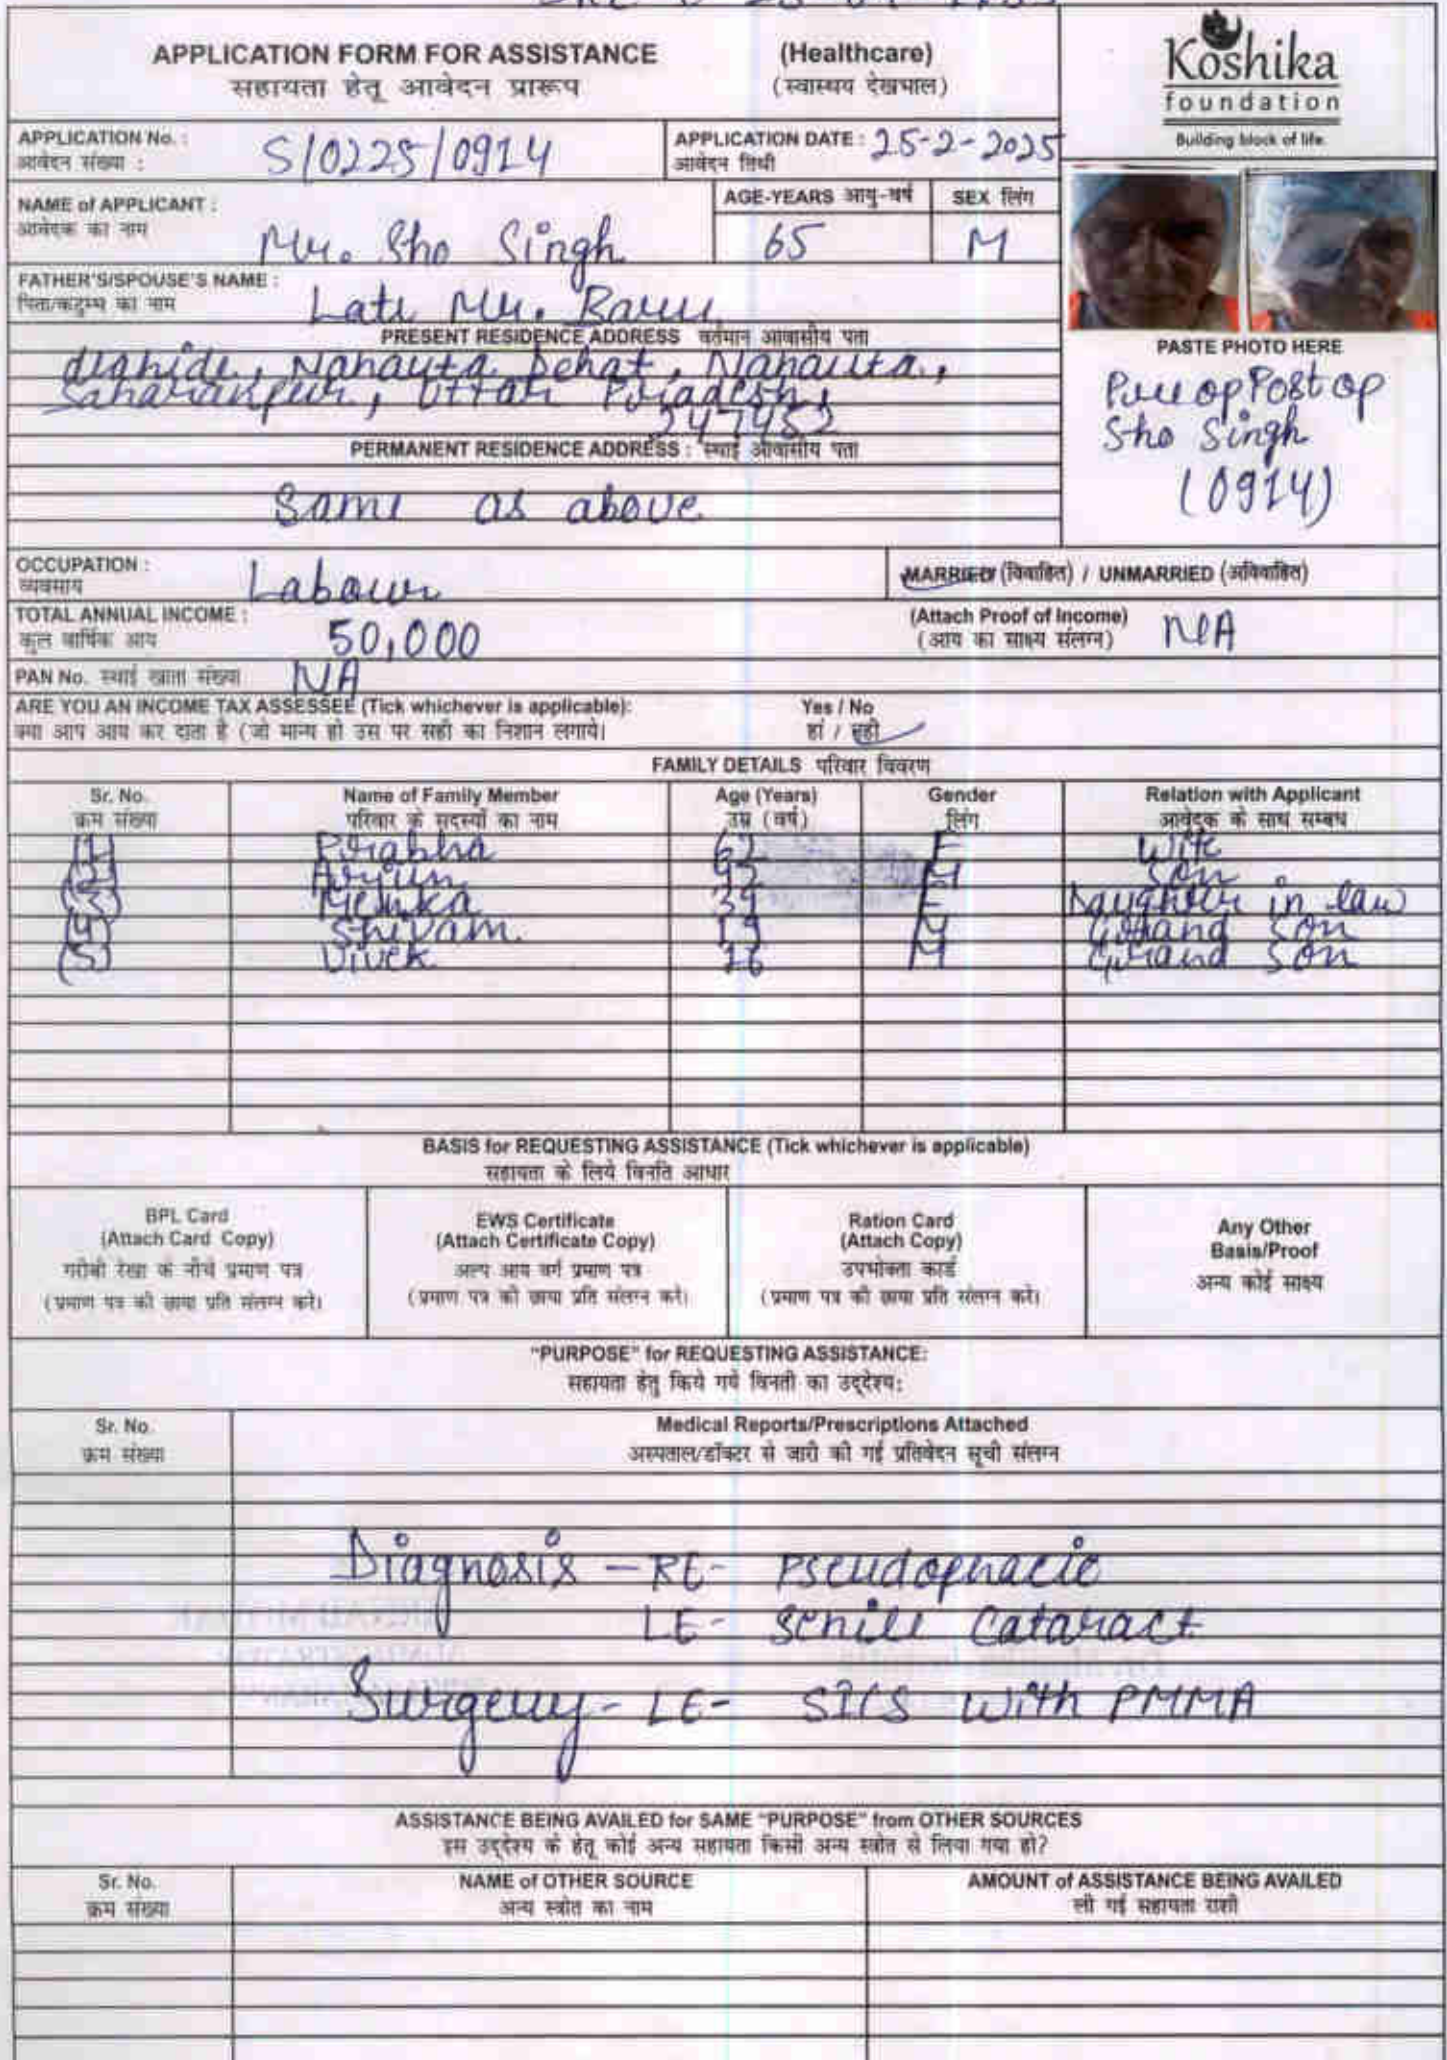 APPLICATION FORM FOR ASSISTANCE (Healthcare)
सहायता हेतू आवेदन प्रारूप (स्वास्थय देखभाल)
Koshika
foundation
Building block of life
APPLICATION No. : S/0225/0914 APPLICATION DATE : 25-2-2025
आवेदन संख्या : आवेदन तिथी
NAME of APPLICANT : Mr. Sho Singh AGE-YEARS आयु-वर्ष 65 SEX लिंग M
आवेदक का नाम
FATHER'S/SPOUSE'S NAME : Late Mr.
पिता/कटुम्ब का नाम
PRESENT RESIDENCE ADDRESS वर्तमान आवासीय पता
Nanauta Dehat, Nanauta,
Saharanpur, Uttar Pradesh,
247452
PERMANENT RESIDENCE ADDRESS : स्थाई आवासीय पता
Same as above
PASTE PHOTO HERE
Pre op Post op
Sho Singh
(0914)
OCCUPATION : Labour MARRIED (विवाहित) / UNMARRIED (अविवाहित)
व्यवसाय
TOTAL ANNUAL INCOME : 50,000 (Attach Proof of Income) N/A
कुल वार्षिक आय (आय का साक्ष्य संलग्न)
PAN No. स्थाई खाता संख्या NA
ARE YOU AN INCOME TAX ASSESSEE (Tick whichever is applicable): Yes / No
क्या आप आय कर दाता है (जो मान्य हो उस पर सही का निशान लगाये। हां / नही
FAMILY DETAILS परिवार विवरण
Sr. No. Name of Family Member Age (Years) Gender Relation with Applicant
क्रम संख्या परिवार के सदस्यों का नाम उम्र (वर्ष) लिंग आवेदक के साथ सम्बध
(1) Prabha 62 F Wife
(2) Arjun 42 M Son
(3) Menka 39 F Daughter in law
(4) Shivam 19 M Grand Son
(5) Vivek 16 M Grand Son
BASIS for REQUESTING ASSISTANCE (Tick whichever is applicable)
सहायता के लिये विनति आधार
BPL Card
(Attach Card Copy)
गरीबी रेखा के नीचे प्रमाण पत्र
(प्रमाण पत्र की छाया प्रति संलग्न करे।
EWS Certificate
(Attach Certificate Copy)
अल्प आय वर्ग प्रमाण पत्र
(प्रमाण पत्र की छाया प्रति संलग्न करे।
Ration Card
(Attach Copy)
उपभोक्ता कार्ड
(प्रमाण पत्र की छाया प्रति संलग्न करे।
Any Other
Basis/Proof
अन्य कोई साक्ष्य
"PURPOSE" for REQUESTING ASSISTANCE:
सहायता हेतु किये गये विनती का उद्देश्य:
Sr. No. Medical Reports/Prescriptions Attached
क्रम संख्या अस्पताल/डॉक्टर से जारी की गई प्रतिवेदन सूची संलग्न
Diagnosis - RE- Pseudophacic
LE- Senile Cataract
Surgery- LE- SICS with PMMA
ASSISTANCE BEING AVAILED for SAME "PURPOSE" from OTHER SOURCES
इस उद्देश्य के हेतू कोई अन्य सहायता किसी अन्य स्त्रोत से लिया गया हो?
Sr. No. NAME of OTHER SOURCE AMOUNT of ASSISTANCE BEING AVAILED
क्रम संख्या अन्य स्त्रोत का नाम ली गई सहायता राशी